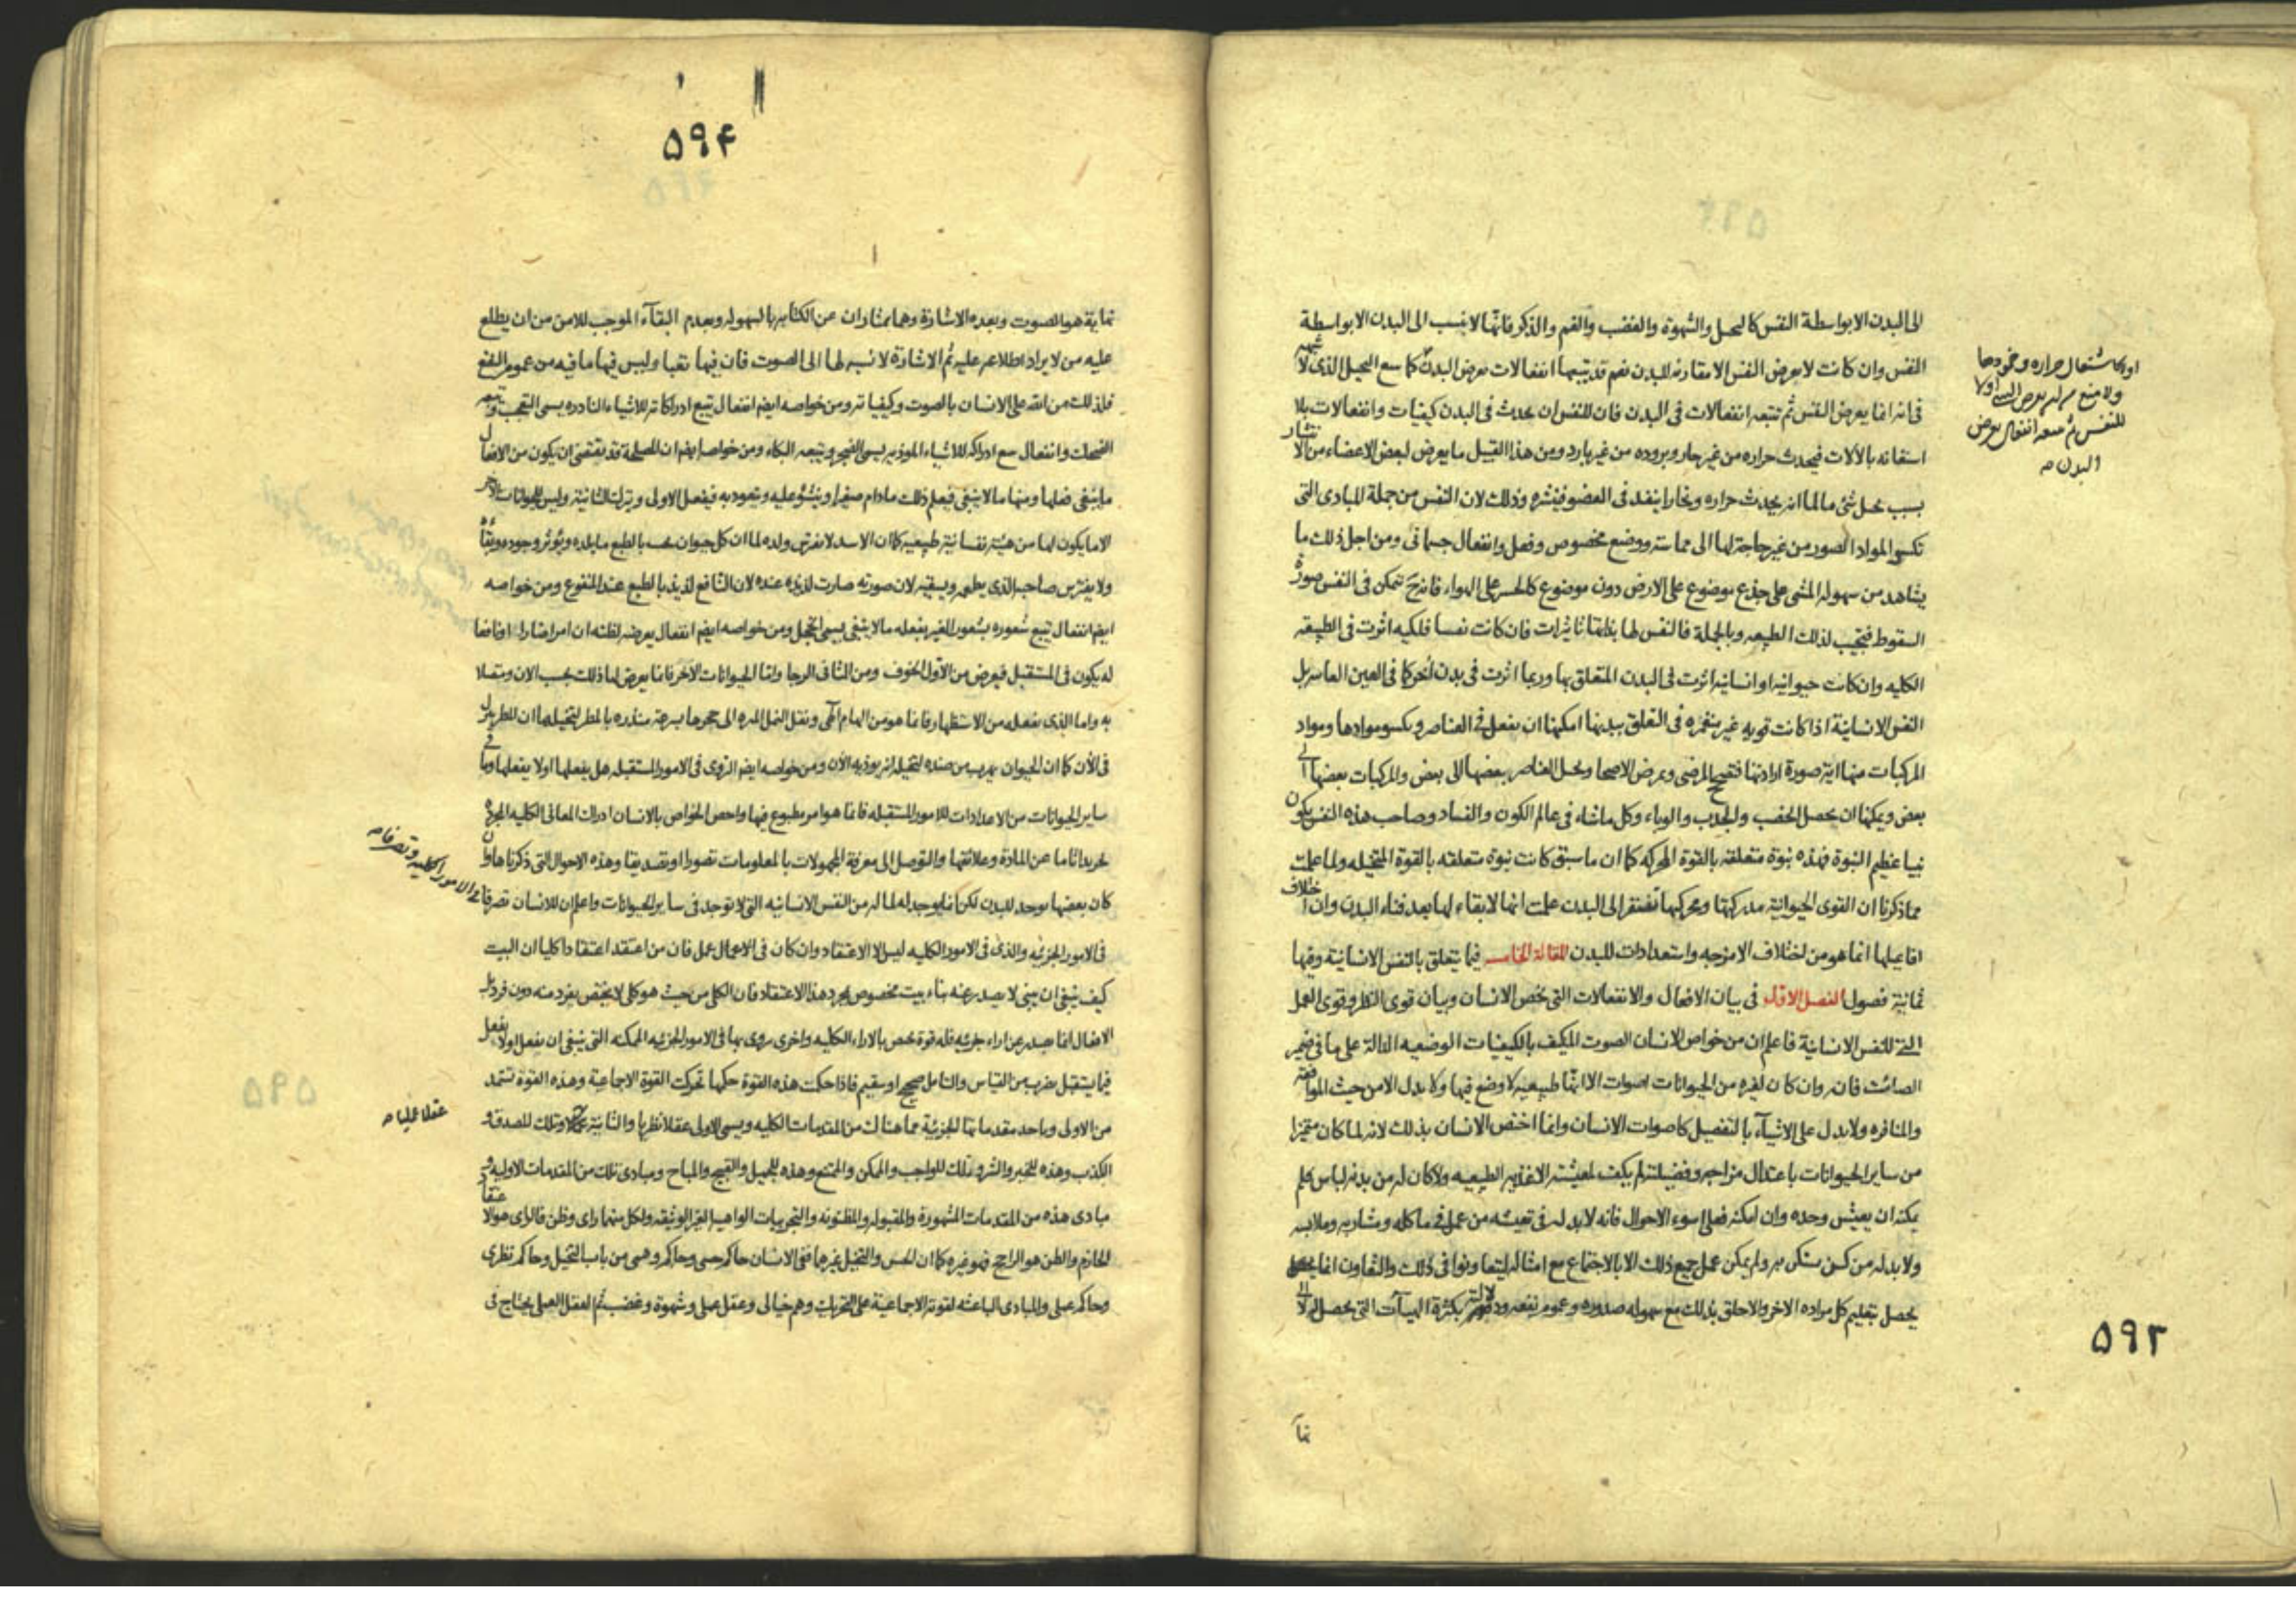 الى البدن الا بواسطة النفس كالتخيل والشهوة والغضب والغم والذكر فانها لا ينسب الى البدن الا بواسطة
النفس وان كانت لا يعرض النفس الا مقارنه للبدن نعم قد يتبعها انفعالات تعرض البدن كما يتبع التخيل الذى لا شبهه
فى انه انما يعرض النفس ثم تتبعه انفعالات فى البدن فان للنفس ان يحدث فى البدن كيفيات وانفعالات بلا
استعانه بالآلات فيحدث حراره من غير حار وبروده من غير بارد ومن هذا القبيل ما يعرض لبعض الاعضاء من الانتشار
بسبب تخيل شئ ما لما انه يحدث حراره وبخارا ينفذ فى العضو فينشره وذلك لان النفس من جملة المبادى التى
تكسو المواد الصور من غير حاجة لها الى مماسته ووضع مخصوص وفعل وانفعال جسمانى ومن اجل ذلك ما
يشاهد من سهوله المشى على جذع موضوع على الارض دون موضوع كالجسر على الهواء فانه ح تتمكن فى النفس صورة
السقوط فتجيب لذلك الطبيعه وبالجملة فالنفس لها بذاتها تاثيرات فان كانت نفسا فلكيه اثرت فى الطبيعه
الكليه وان كانت حيوانيه او انسانيه اثرت فى البدن المتعلق بها وربما اثرت فى بدن آخر كما فى العين العاينه بل
النفس الانسانية اذا كانت قويه غير منغمزه فى التعلق ببدنها امكنها ان يفعل فى العناصر ويكسو موادها ومواد
المركبات منها اية صورة ارادتها فتصح المرضى ويمرض الاصحا ويحيل العناصر بعضها الى بعض والمركبات بعضها الى
بعض ويمكنها ان يحصل الخصب والجدب والوباء وكل ما شاء فى عالم الكون والفساد وصاحب هذه النفس يكون
نبيا عظيم النبوة فهذه نبوة متعلقه بالقوة المحركه كما ان ما سبق كانت نبوة متعلقه بالقوة المتخيله ولما علمت
مما ذكرنا ان القوى الحيوانية مدركيتها ومحركيتها تفتقر الى البدن علمت انها لا بقاء لها بعد فناء البدن وان اختلاف
افاعيلها انما هو من اختلاف الامزجه واستعدادات للبدن المقالة الخامسه فيما يتعلق بالنفس الانسانية وفيها
ثمانية فصول الفصل الاول فى بيان الافعال والانفعالات التى تخص الانسان وبيان قوى النظر وقوى العمل
التى للنفس الانسانية فاعلم ان من خواص الانسان الصوت المكيف بالكيفيات الوضعيه الدالة على ما فى ضمير
الصائت فانه وان كان لغيره من الحيوانات اصوات الا انها طبيعيه لا وضع فيها ولا يدل الا من حيث الموافقه
والمنافره ولا يدل على الاشياء بالتفصيل كاصوات الانسان وانما اختص الانسان بذلك لانه لما كان متميزا
من ساير الحيوانات باعتدال مزاجه وفضيلته لم يكف لمعيشته الاغذيه الطبيعيه ولا كان له من بدنه لباس فلم
يمكنه ان يعيش وحده وان امكنه فعلى اسوء الاحوال فانه لا بد له فى تعيشه من عمل فى ماكله ومشاربه وملابسه
ولا بد له من كن يستكن به ولم يمكن عمل جميع ذلك الا بالاجتماع مع امثاله ليتعاونوا فى ذلك والتعاون انما
يحصل بتعليم كل مراده الاخر والاحلق بذلك مع سهوله صدوره وعموم نفعه ودلالته بكثرة الهيآت التى يحصل له لا الى
او كاشتعال حراره وخمودها
ولا منع من ان يعرض الشئ اولا
للنفس ثم يتبعه انفعال يعرض
البدن صه
نها
۵۹۳
۵۹۴
نهاية هو الصوت وبعده الاشارة وهما يمتازان عن الكتابه بالسهوله وبعدم البقاء الموجب للامن من ان يطلع
عليه من لا يراد اطلاعه عليه ثم الاشارة لا نسبه لها الى الصوت فان فيها تعبا وليس فيها ما فيه من عموم النفع
فلذلك من الله على الانسان بالصوت وكيفياته ومن خواصه ايضا انفعال تتبع ادراكاته للاشياء النادره يسمى التعجب ويتبعه
الضحك وانفعال يتبع ادراكه للاشياء الموذيه يسمى الضجر ويتبعه البكاء ومن خواصه ايضا ان المصلحة قد يقتضى ان يكون من الافعال
ما ينبغى فعلها ومنها ما لا ينبغى فيعلم ذلك ما دام صغيرا وينشؤ عليه ويتعود به فيفعل الاولى ويترك الثانية وليس للحيوانات الاخر
الا ما يكون لها من هيئة نفسانية طبيعيه كما ان الاسد لا يفترس ولده لما ان كل حيوان يحب بالطبع ما يلده ويؤثر وجوده وبقاؤه
ولا يفترس صاحبه الذى يطعمه ويسقيه لان صورته صارت لذيذه عنده لان النافع لذيذ بالطبع عند المنفوع ومن خواصه
ايضا انفعال تتبع شعوره بشعور الغير بفعله ما لا ينبغى يسمى الخجل ومن خواصه ايضا انفعال يعرضه لظنه ان امرا ضارا او نافعا
له يكون فى المستقبل فيعرض من الاول الخوف ومن الثانى الرجا واما الحيوانات الاخر فانما يعرض لها ذلك بحسب الان ومتصلا
به واما الذى يفعله من الاستظهار فانما هو من الهام الهى ونقل النمل البره الى جحرها بسرعه منذره بالمطر لتخيلها ان المطر ينزل
فى الآن كما ان الحيوان يهرب من ضده لتخيله انه يوذيه الآن ومن خواصه ايضا التروى فى الامور المستقبله هل يفعلها اولا يفعلها وما فى
ساير الحيوانات من الاعدادات للامور المستقبله فانما هو امر مطبوع فيها واخص الخواص بالانسان ادراك المعانى الكليه المجرده
تجريدا تاما عن المادة وعلائقها والتوصل الى معرفة المجهولات بالمعلومات تصورا او تصديقا وهذه الاحوال التى ذكرناها وان
كان بعضها يوجد للبدن لكن انما يوجد له لما له من النفس الانسانيه التى لا توجد فى ساير الحيوانات واعلم ان للانسان تصرفا
فى الامور الجزئيه والذى فى الامور الكليه ليس الا الاعتقاد وان كان فى الاعمال عمل فان من اعتقد اعتقادا كليا ان البيت
كيف ينبغى ان يبنى لا يصدر عنه بناء بيت مخصوص بمجرد هذا الاعتقاد فان الكلى من حيث هو كلى لا يختص بفرد منه دون فرد بل
الافعال انما يصدر عن اراء جزئيه فله قوة تختص بالاراء الكليه واخرى يروى بها فى الامور الجزئيه الممكنه التى ينبغى ان يفعل او لا يفعل
فيما يستقبل بضرب من القياس والتامل صحيح او سقيم فاذا حكمت هذه القوة حكمها تحركت القوة الاجماعية وهذه القوة تستمد
من الاولى وياخذ مقدماتها الجزئية مما هنالك من المقدمات الكليه ويسمى الاولى عقلا نظريا والثانية وتلك للصدق و
الكذب وهذه للخير والشر وتلك للواجب والممكن والممتنع وهذه للجميل والقبيح والمباح ومبادى تلك من المقدمات الاوليه و
مبادى هذه من المقدمات المشهورة والمقبوله والمظنونه والتجربيات الواهيه الغير الوثيقه ولكل منهما راى وظن فالراى هو الاعتقاد
الجازم والظن هو الراجح فهو غيره كما ان الحس والتخيل غيرها ففى الانسان حاكم حسى وحاكم وهمى من باب التخيل وحاكم نظرى
وحاكم عملى والمبادى الباعثه لقوته الاجماعية على التحريك وهم خيالى وعقل عملى وشهوة وغضب ثم العقل العملى يحتاج فى
فى الامور الكليه وتصرفا صه
عقلا عمليا صه